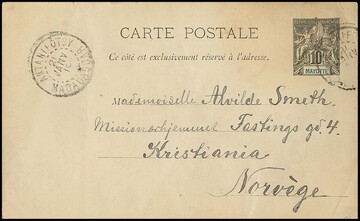 CARTE POSTALE
Ce côté est exclusivement réservé à l'adresse.
10
MAYOTTE
Mademoiselle Alvilde Smeth.
Missionschjemmet Fastings gd. 4.
Kristiania
Norvège